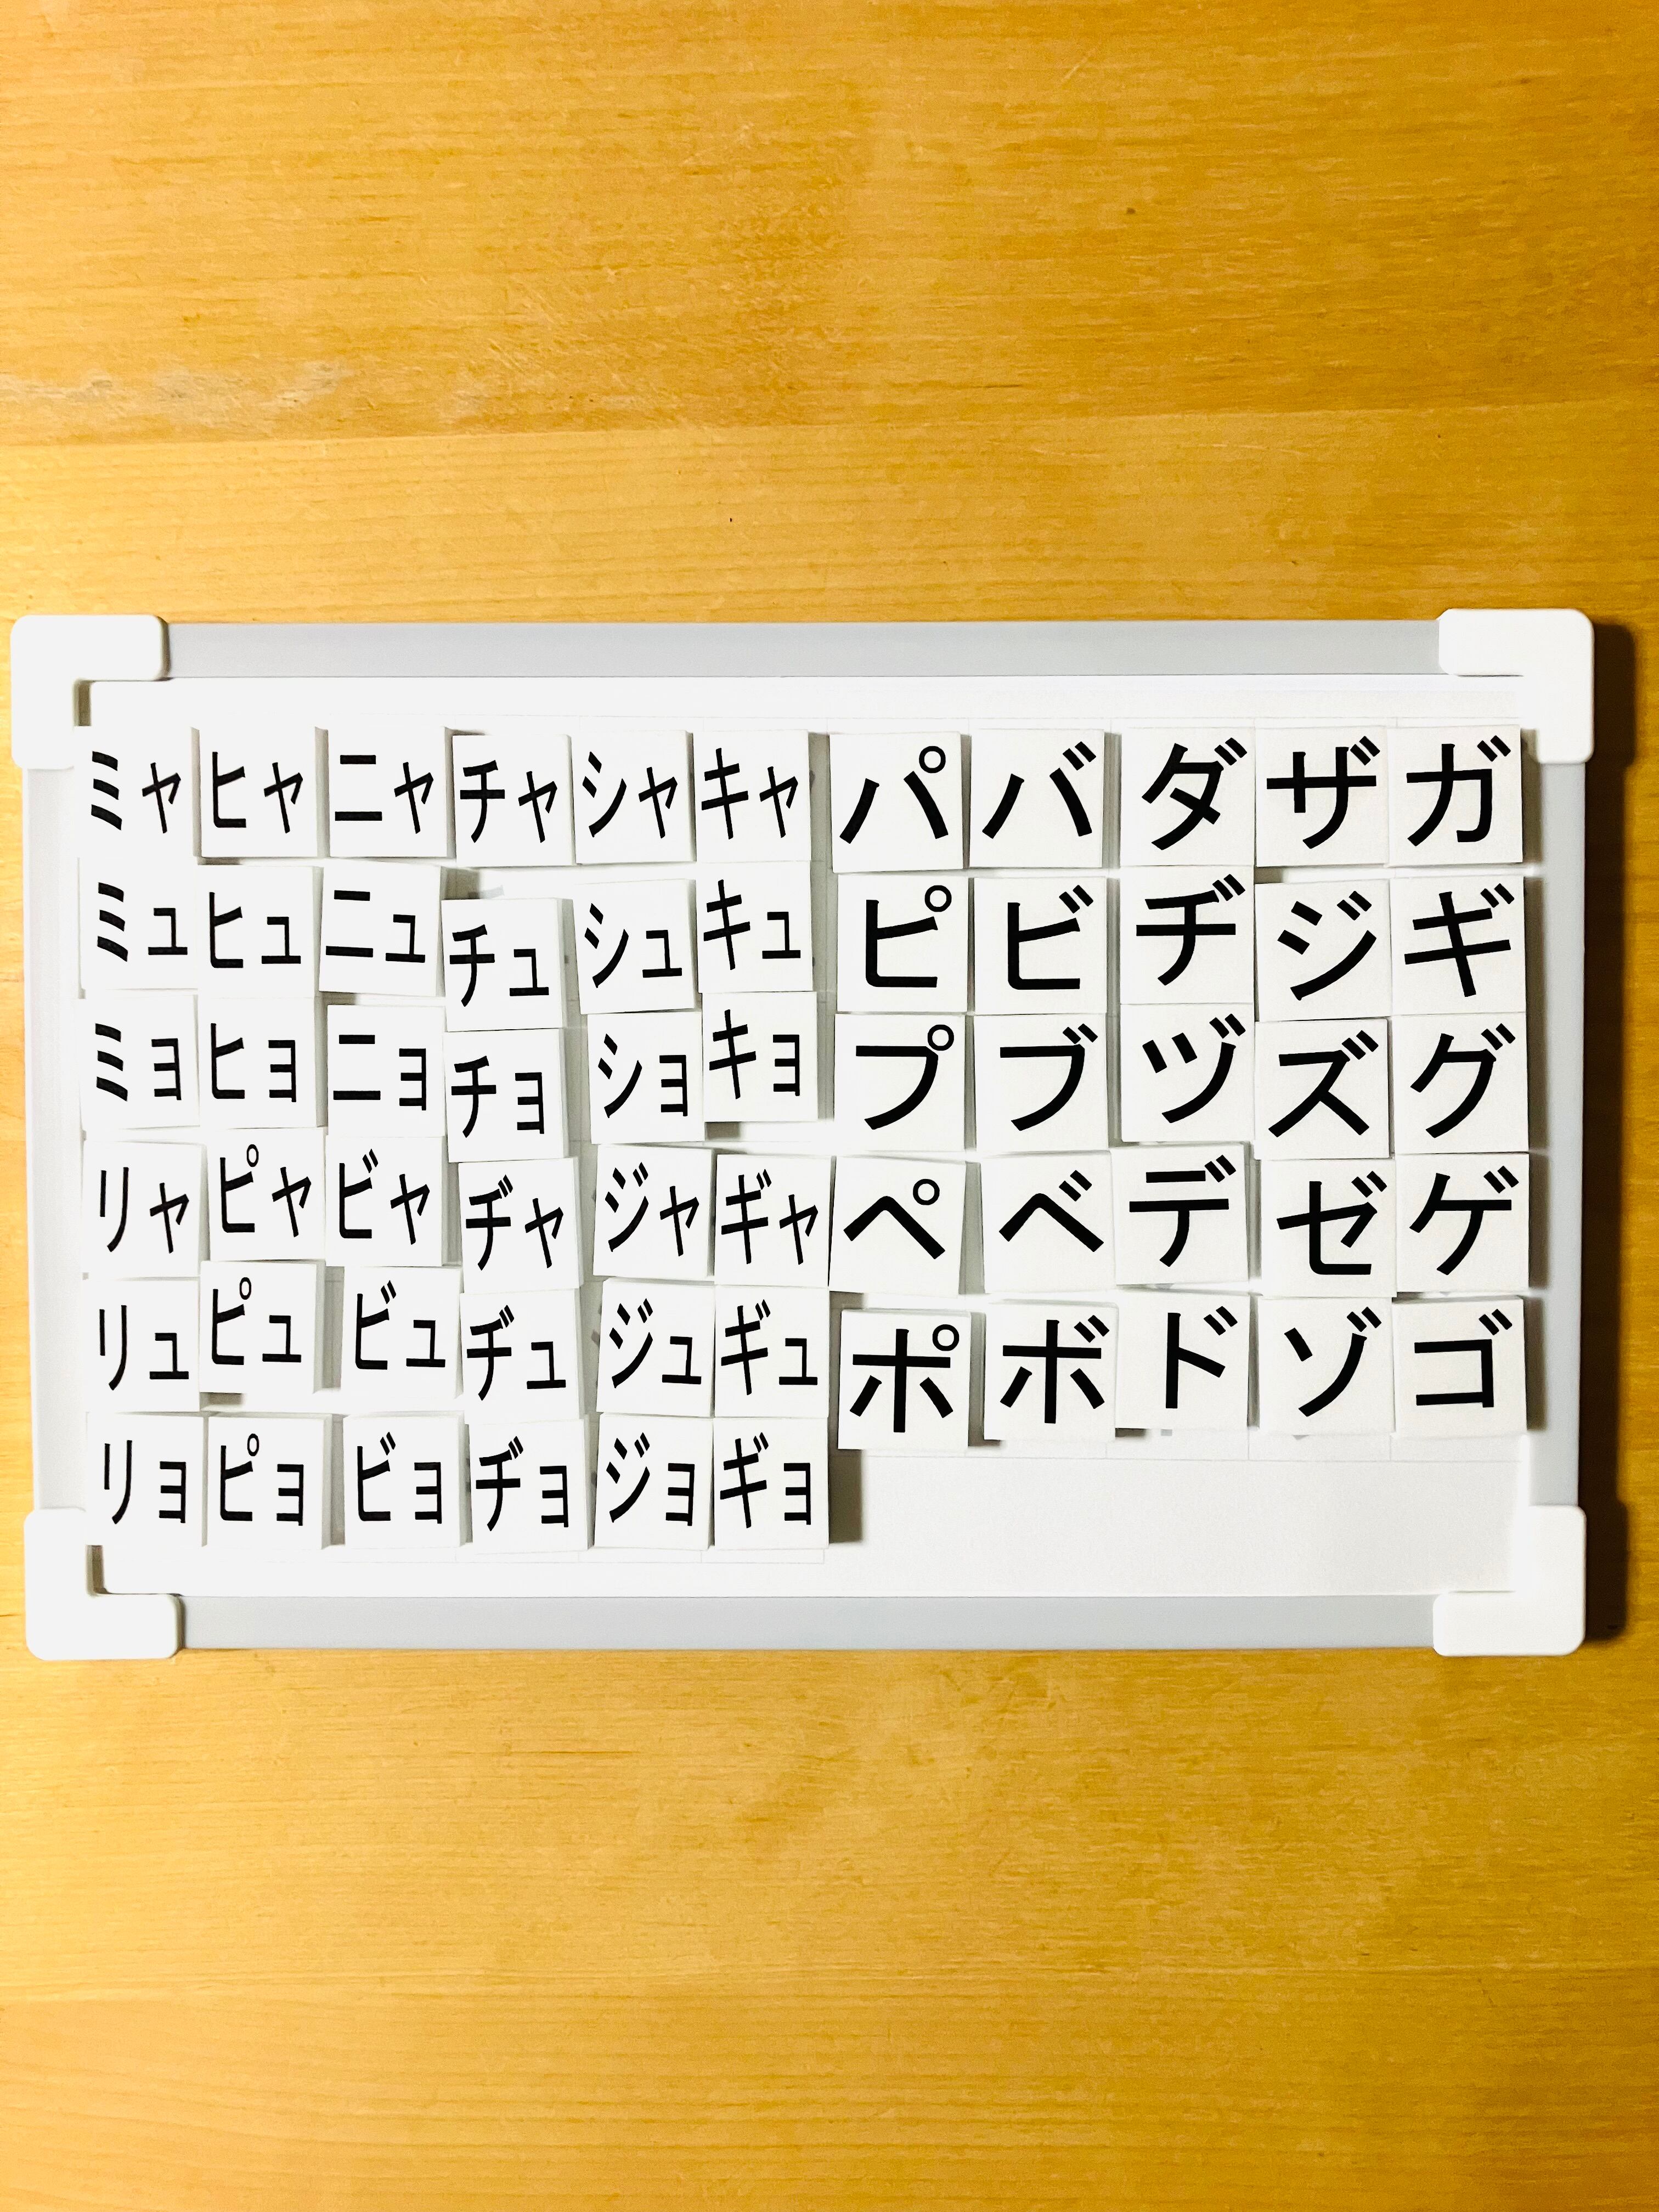 ミャ ヒャ ニャ チャ シャ キャ パ バ ダ ザ ガ
ミュ ヒュ ニュ チュ シュ キュ ピ ビ ヂ ジ ギ
ミョ ヒョ ニョ チョ ショ キョ プ ブ ヅ ズ グ
リャ ピャ ビャ ヂャ ジャ ギャ ペ ベ デ ゼ ゲ
リュ ピュ ビュ ヂュ ジュ ギュ ポ ボ ド ゾ ゴ
リョ ピョ ビョ ヂョ ジョ ギョ